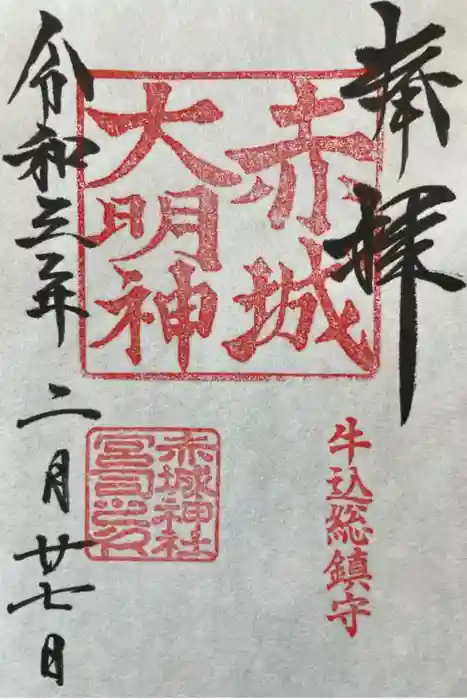 奉拝
赤城
大明神
牛込総鎮守
赤城神社
宮司之印
令和三年
二月廿七日